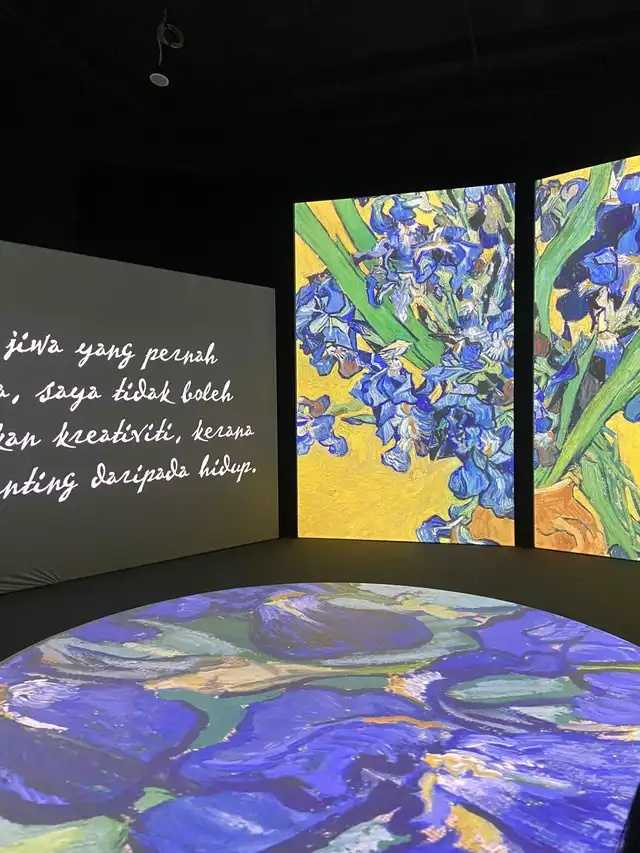 jiwa yang pernah
a, saya tidak boleh
kan kreativiti, kerana
nting daripada hidup.